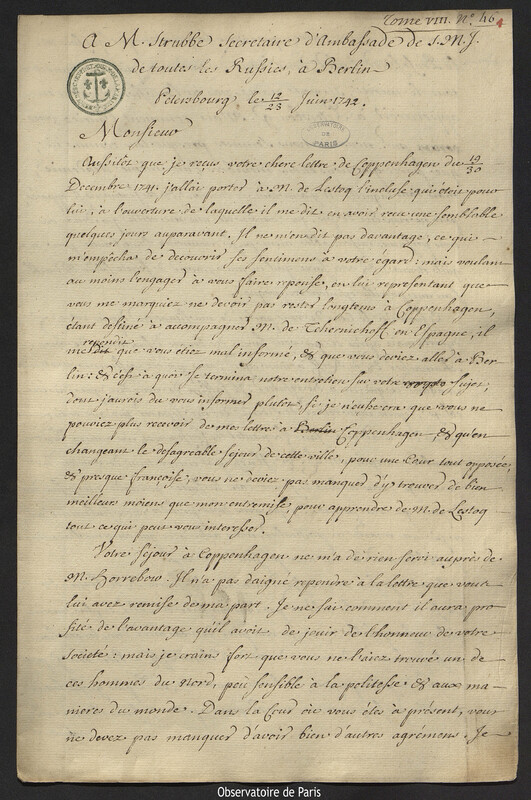 Tome VIII. N.º 46
A M. Strubbe Secretaire d'Ambassade de S. M. J.
de toutes les Russies, à Berlin
Petersbourg, le 12/23 Juin 1742.
OBSERVATOIRE DE PARIS
Monsieur
Aussitôt que je reçus votre chere lettre de Coppenhagen du 19/30
Decembre 1741, j'allai porter à M. de Lestoq l'incluse qui étoit pour
lui, à l'ouverture de laquelle il me dit en avoir reçu une semblable
quelques jours auparavant. Il ne m'en dit pas davantage, ce qui
m'empêcha de decouvrir ses sentimens à votre égard: mais voulant
au moins l'engager à vous faire reponse, en lui representant que
vous me marquiez ne devoir pas rester longtems à Coppenhagen,
étant destiné à accompagner M. de Tchernichoff en Espagne, il
repondit
me dit que vous étiez mal informé, & que vous deviez aller à Ber-
lin: & c'est à quoi se termina notre entretien sur votre sujet,
dont j'aurois du vous informer plutôt, si je n'eusse cru que vous ne
pouviez plus recevoir de mes lettres à Berlin Coppenhagen & qu'en
changeant le desagreable sejour de cette ville, pour une Cour tout opposée,
& presque françoise, vous ne deviez pas manquer d'y trouver de bien
meilleurs moiens que mon entremise, pour apprendre de M. de Lestoq
tout ce qui peut vous interesser.
Votre séjour à Coppenhagen ne m'a de rien servi auprès de
M. Horrebow. Il n'a pas daigné repondre à la lettre que vous
lui avez remise de ma part. Je ne sai comment il aura pro-
fité de l'avantage qu'il avoit de jouir de l'honneur de votre
societé: mais je crains fort que vous ne l'aiez trouvé un de
ces hommes du Nord, peu sensible à la politesse & aux ma-
nieres du monde. Dans la Cour où vous êtes à présent, vous
ne devez pas manquer d'avoir bien d'autres agrémens. Je
Observatoire de Paris